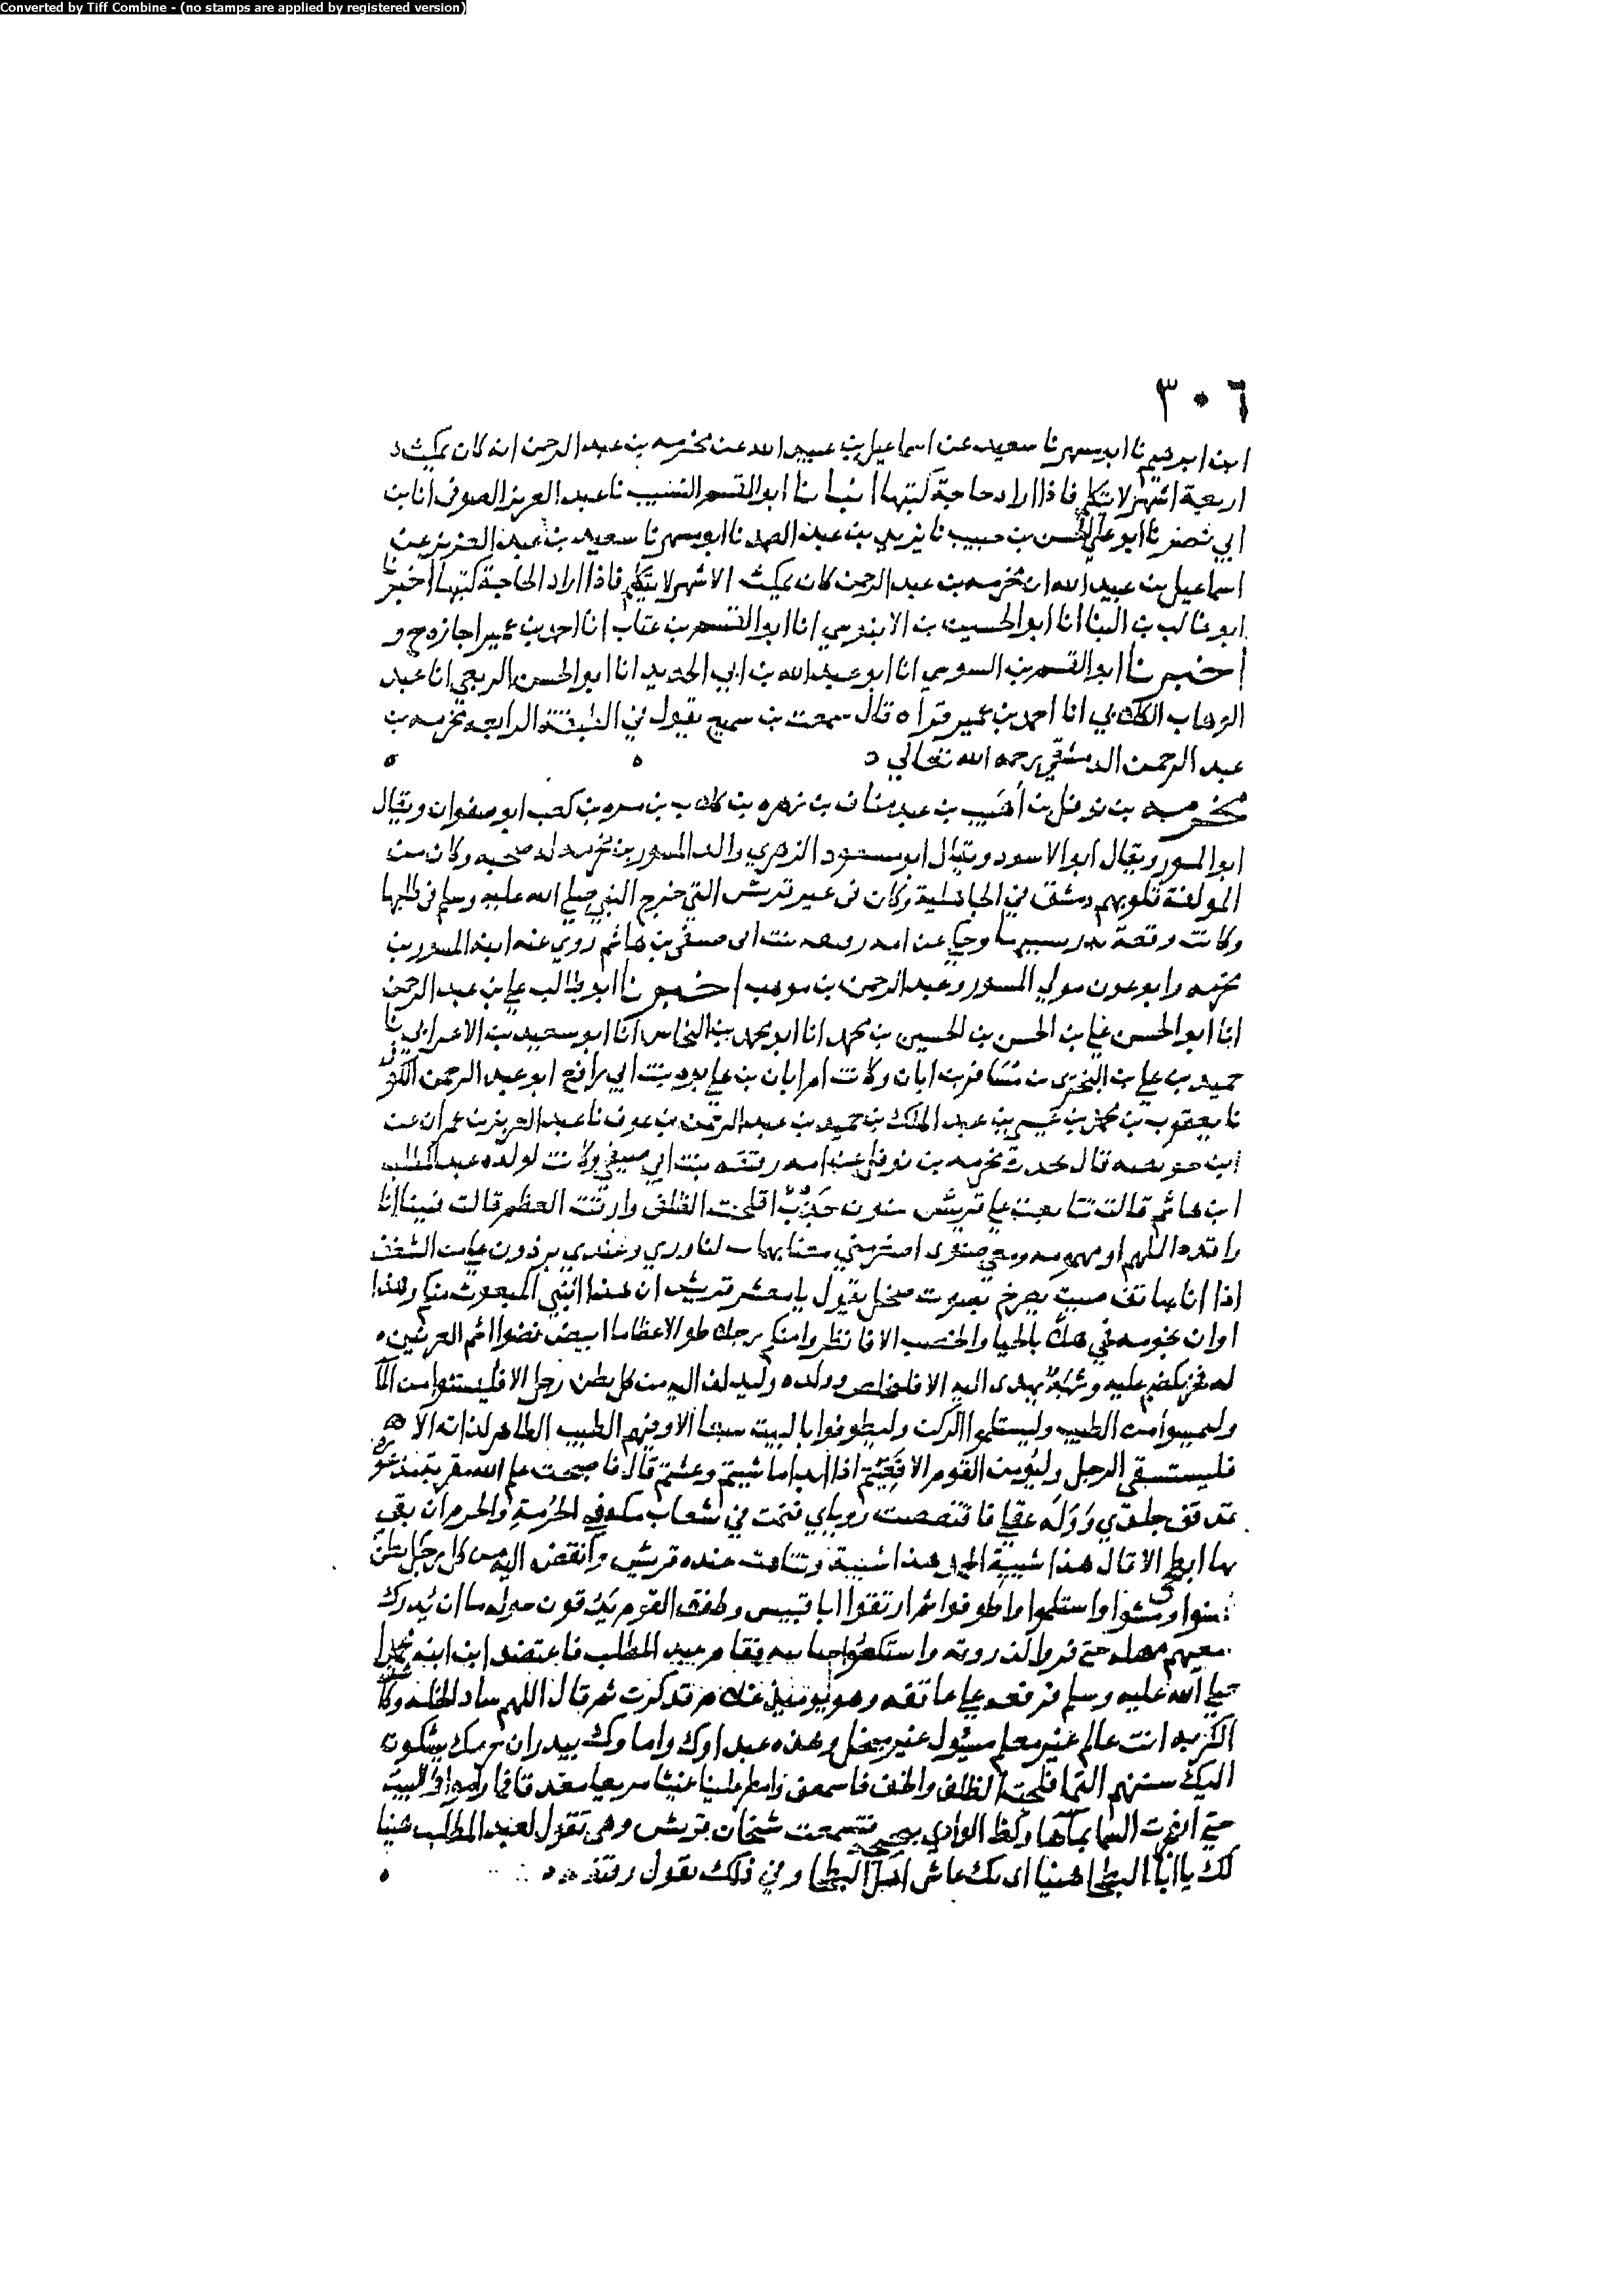 Converted by Tiff Combine - (no stamps are applied by registered version)
٣٠٦
ابن ابرهيم نا ابو مسهر نا سعيد عن اسماعيل بن عبيد الله عن مخرمه بن عبد الرحمن انه كان يمكث
اربعة اشهر لا يتكلم فاذا اراد حاجة كتبها انبانا ابو القسم النسيب نا عبد العزيز الصوفى انا بن
ابي نصر نا ابو علي الحسن بن حبيب نا يزيد بن عبد الصمد نا ابو مسهر نا سعيد بن عبد العزيز عن
اسماعيل بن عبيد الله ان مخرمه بن عبد الرحمن كان يمكث الاشهر لا يتكلم فاذا اراد الحاجة كتبها اخبرنا
ابو غالب بن البنا انا ابو الحسين بن الابنوسي انا ابو القسم بن عتاب انا احمد بن عمير اجازه ح و
اخبرنا ابو القسم بن السوسي انا ابو عبد الله بن ابي الحديد انا ابو الحسن الربعي انا عبد
الوهاب الكلابي انا احمد بن عمير قراه قال سمعت بن سميع يقول في الطبقة الرابعه مخرمه بن
عبد الرحمن الدمشقي رحمه الله تعالي
مخرمه بن نوفل بن أهيب بن عبد مناف بن زهره بن كلاب بن مره بن كعب ابو صفوان ويقال
ابو المسور ويقال ابو الاسود ويقال ابو مسعود الزهري والد المسور بن مخرمه له صحبه وكان من
المولفة قلوبهم دمشق في الجاهلية وكان فى عير قريش التي خرج النبي صلي الله عليه وسلم فى طلبها
وكانت وقعة بدر بسببها وحكي عن امه رقيقه بنت ابى صيفى بن هاشم روي عنه ابنه المسور بن
مخرمه وابو عون مولي المسور وعبد الرحمن بن موهب اخبرنا ابو طالب علي بن عبد الرحمن
انا ابو الحسن علي بن الحسن بن الحسين بن محمد انا ابو محمد بن النحاس انا ابو سعيد بن الاعرابي نا
حميد بن علي بن البختري بن مسافر بن ابان وكانت ام ابان بن علي بنت ابي رافع ابو عبد الرحمن الكوفى
نا يعقوب بن محمد بن عيسي بن عبد الملك بن حميد بن عبد الرحمن بن عوف نا عبد العزيز بن عمران عن
ابن حويصه قال يحدث مخرمه بن نوفل عن امه رقيقه بنت ابي صيفي وكانت لولده عبد المطلب
ابن هاشم قالت تتابعت علي قريش سنون اقحلت الظلف وارقت العظم قالت فبينا انا
راقده اللهم او مهمومه ومعي صنوى
اذا انا بهاتف صيت يصرخ بصوت صحل يقول يا معشر قريش ان هذا النبي المبعوث منكم وهذا
اوان نجومه في هلا بالحيا والخصب الا فانظروا منكم رجلا طوالا عظاما ابيض
له فخر يكظم عليه وسنة يهدى اليه الا فليخلص وولده وليدلف اليه من كل بطن رجل الا فليستنوا من الما
وليمسوا من الطيب وليستلموا الركن وليطوفوا بالبيت سبعا الا وفيهم الطيب الطاهر لذاته الا
فليستسقى الرجل وليؤمن القوم الا فغيثتم اذا ابدا ما شيتم وعشتم قال فاصبحت علم الله
قد قف جلدي ووله عقلي فاقتصصت روياي فنمت في شعاب مكه في الحرمة والحرم ان بقى
بها ابطحى الا قال هذا شيبة الحمد هذا شيبة وتتامت عنده قريش وانقض اليه من كل رجل بطن
فشنوا ومسوا واستلموا واطوفوا ثم ارتقوا ابا قبيس وطفق القوم يدفون حوله ما ان يدرك
سعيهم مهله حتى قروا لذروته واستكفوا جنابيه فقام عبد المطلب فاعتضد ابن ابنه محمدا
صلي الله عليه وسلم فرفعه علي عاتقه وهو يوميذ غلام قد كرب ثم قال اللهم ساد الخله وكاشف
الكربه انت عالم غير معلم مسئول غير مبخل وهذه عبداوك واماوك بعذرات حرمك يشكون
اليك سنتهم التى اقحلت الظلف والخف فاسمعن وامطر علينا غيثا سريعا مغدقا فما راموا البيت
حتي انفجرت السما بماها وكظ الوادي فسمعت شيخان قريش وهى تقول لعبد المطلب هنيا
لك يا ابا البطحا هنيا اى بك عاش اهل البطحا وفي ذلك تقول رقيقه